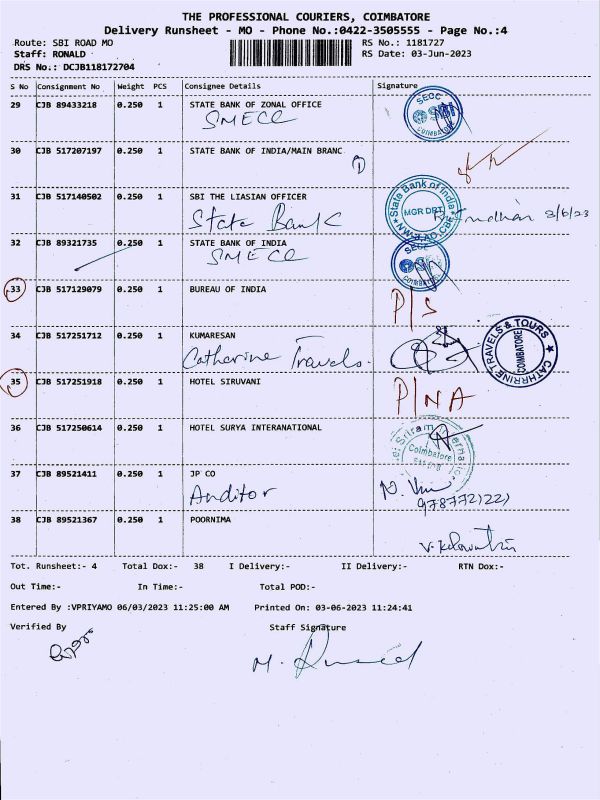 THE PROFESSIONAL COURIERS, COIMBATORE
Delivery Runsheet - MO - Phone No.:0422-3505555 - Page No.:4
Route: SBI ROAD MO RS No.: 1181727
Staff: RONALD RS Date: 03-Jun-2023
DRS No.: DCJB118172704
S No Consignment No Weight PCS Consignee Details Signature
29 CJB 89433218 0.250 1 STATE BANK OF ZONAL OFFICE
SMECC
SECC
SBI
COIMBATORE
30 CJB 517207197 0.250 1 STATE BANK OF INDIA/MAIN BRANC
1
31 CJB 517140502 0.250 1 SBI THE LIASIAN OFFICER
State Bank
State Bank of India
MGR DBT
3/6/23
32 CJB 89321735 0.250 1 STATE BANK OF INDIA
SMECC
SECC
SBI
COIMBATORE
33 CJB 517129079 0.250 1 BUREAU OF INDIA
P/S
34 CJB 517251712 0.250 1 KUMARESAN
Catherine Travels.
CATHRINE TRAVELS & TOURS
COIMBATORE
35 CJB 517251918 0.250 1 HOTEL SIRUVANI
P/NA
36 CJB 517250614 0.250 1 HOTEL SURYA INTERANATIONAL
Coimbatore
37 CJB 89521411 0.250 1 JP CO
Auditor
38 CJB 89521367 0.250 1 POORNIMA
Tot. Runsheet:- 4 Total Dox:- 38 I Delivery:- II Delivery:- RTN Dox:-
Out Time:- In Time:- Total POD:-
Entered By :VPRIYAMO 06/03/2023 11:25:00 AM Printed On: 03-06-2023 11:24:41
Verified By Staff Signature